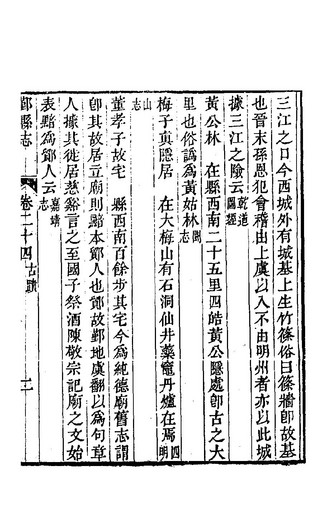 三江之口今西城外有城基上生竹篠俗曰篠牆卽故基
也晉末孫恩犯會稽由上虞以入不由明州者亦以此城
據三江之險云乾道圖經
黃公林　在縣西南二十五里四皓黃公隱處卽古之大
里也俗譌爲黃姑林聞志
梅子眞隱居　在大梅山有石洞仙井藥竈丹爐在焉四明
山志
董孝子故宅　縣西南百餘步其宅今爲純德廟舊志謂
卽其故居立廟則黯本鄞人也鄮故鄞地虞翻以爲句章
人據其徙居慈谿言之至國子祭酒陳敬宗記廟之文始
表黯爲鄞人云嘉靖志
鄞縣志　卷二十四古蹟　二